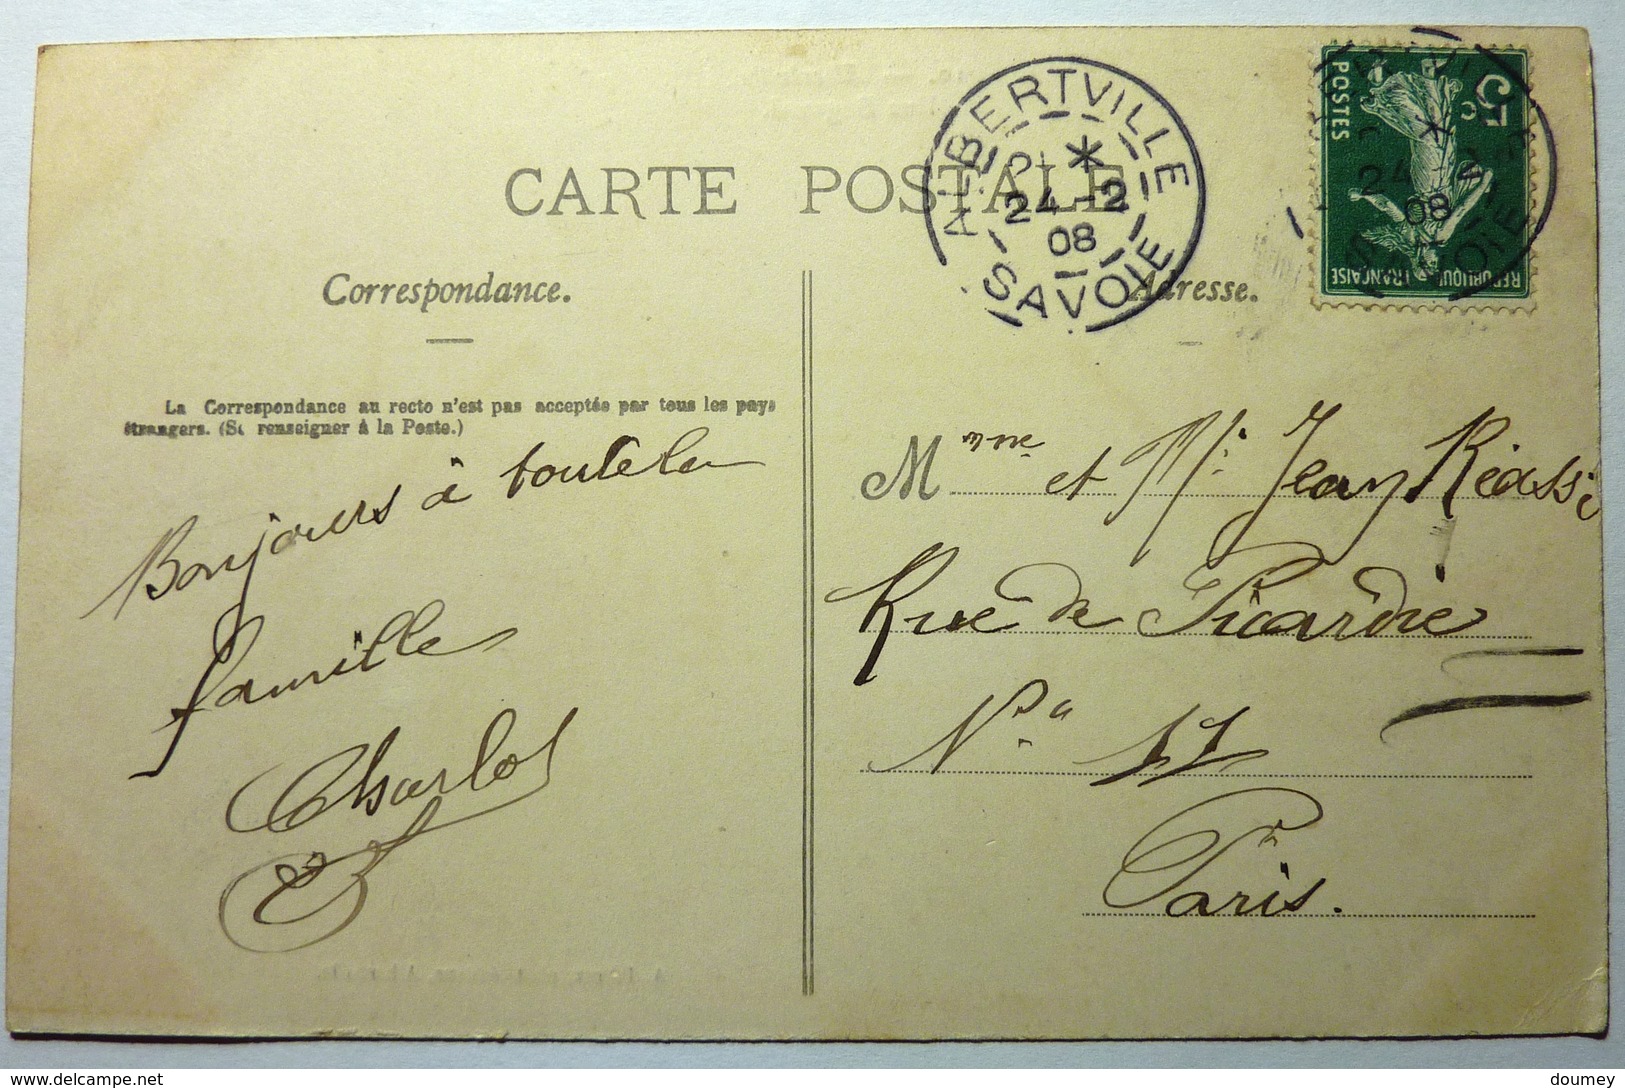 CARTE POSTALE
ALBERTVILLE
*
24 -2
08
SAVOIE
POSTES
5
REPUBLIQUE FRANÇAISE
Correspondance.
Adresse.
La Correspondance au recto n'est pas acceptée par tous les pays
étrangers. (Se renseigner à la Poste.)
Bonjours à toute la
famille
Charlos
M me et Mr Jean
Rue de Picardie
No 17
Paris.
http://www.delcampe.net
doumey